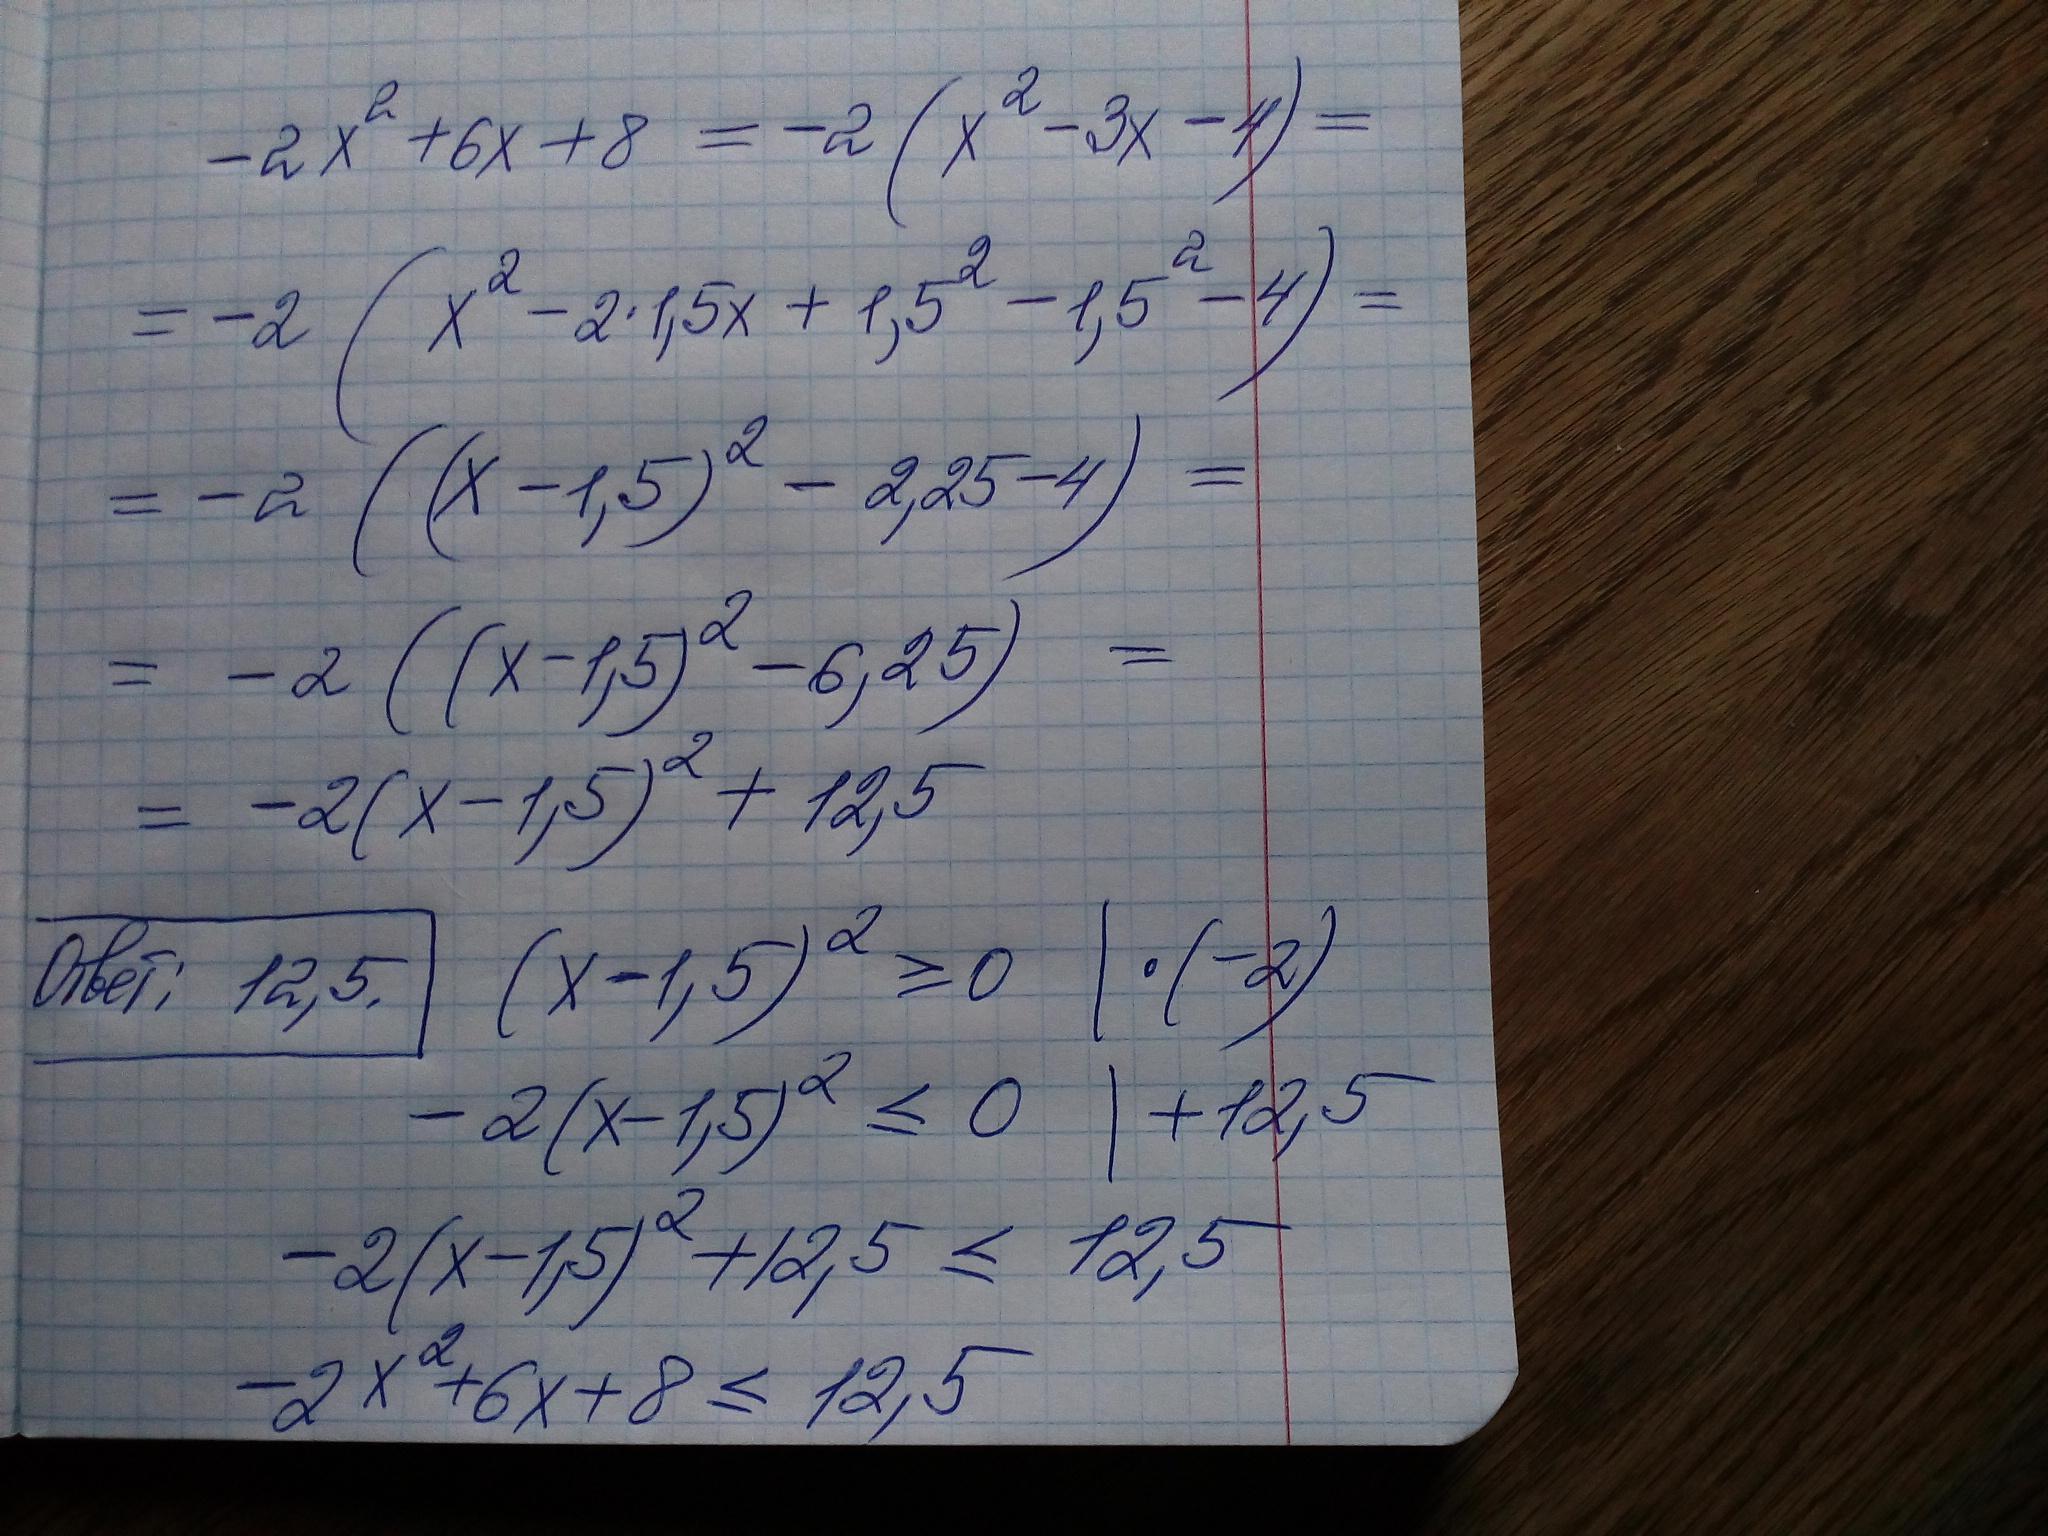 -2x² + 6x + 8 = -2(x² - 3x - 4) =
= -2(x² - 2·1,5x + 1,5² - 1,5² - 4) =
= -2((x - 1,5)² - 2,25 - 4) =
= -2((x - 1,5)² - 6,25) =
= -2(x - 1,5)² + 12,5
Ответ: 12,5. (x - 1,5)² ≥ 0 | ·(-2)
-2(x - 1,5)² ≤ 0 | + 12,5
-2(x - 1,5)² + 12,5 ≤ 12,5
-2x² + 6x + 8 ≤ 12,5